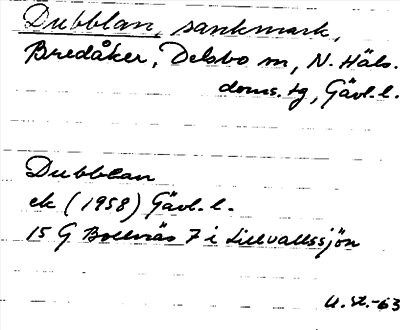 Dubblan, sankmark,
Bredåker, Delsbo sn, N. Häls.
doms. tg, Gävl. l.
Dubblan
ek (1958) Gävl. l.
15 G Bollnäs 7 i Lillvallssjön
U. St. -63